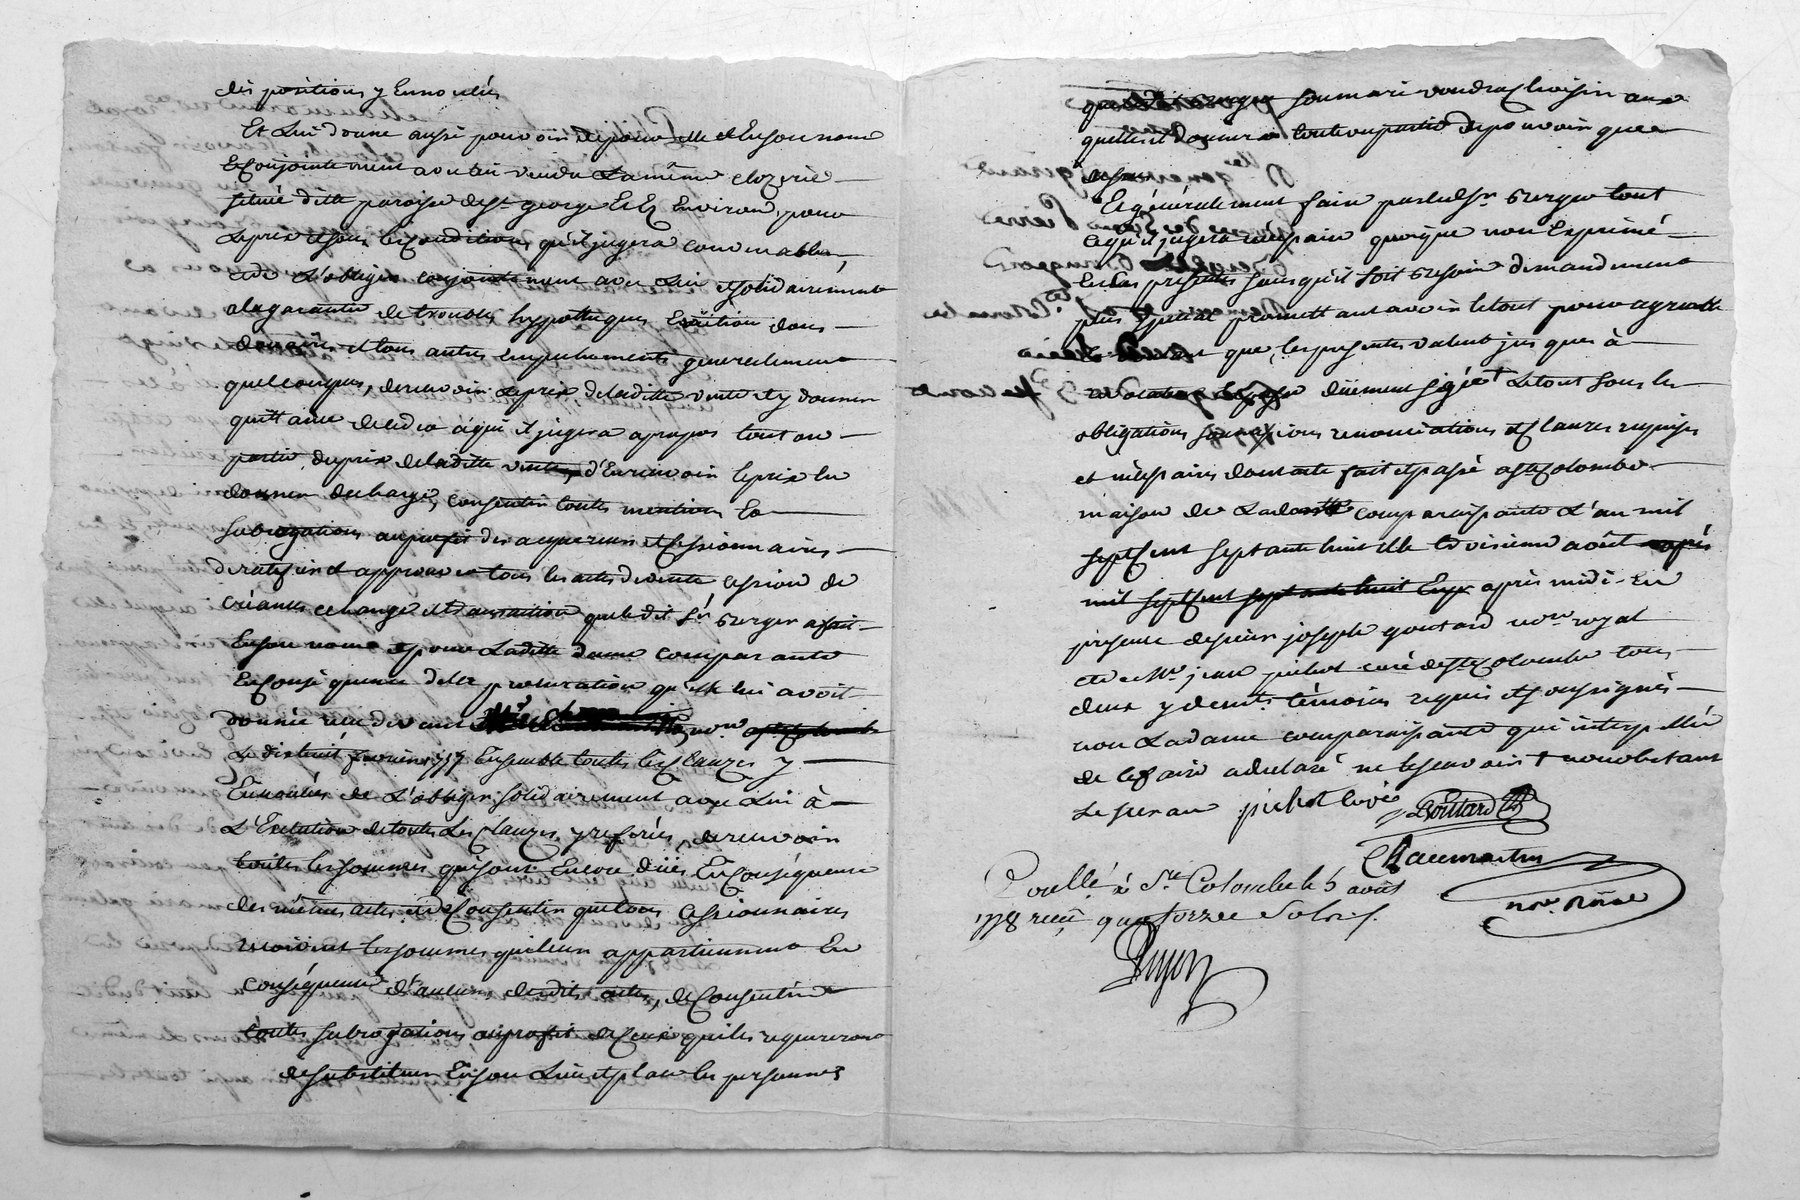 dispositions y Ennoncées
Et Lui donne aussi pouvoir de pour elle et En son nom
Et Conjointement avec lui vendre La même clozerie
située ditte paroisse de St george Et Es Environs, pour
Le prix et sous les conditions qu'il jugera convenables,
et de s'obliger conjointement avec Lui et solidairement
a la garantie de troubles hypotheques Eviction dons
douaires et tous autres Empechements generalement
quelconques, de recevoir Le prix de laditte vente et y donner
quittance de celui a qui il jugera apropos tout ou
partie du prix de laditte vente, d'En recevoir le prix En
donner decharge, consentir toutes mentions Et
subrogations au profit des acquereurs et cessionnaires
de ratifier et approuver tous les actes de vente cession de
créances echange et transaction que le dit Sr Berger a fait
En son nom et pour Laditte dame comparante
En Conséquence de la procuration qu'elle lui avoit
donnée reçue devant nore
Le dix huit fevrier 1757 Ensemble toutes les Clauzes y
Ennoncées de s'obliger solidairement avec Lui à
L'Exécution de toutes Les Clauzes y referées, de recevoir
toutes les sommes qui sont Encore düës En Conséquence
des mêmes actes et de Consentir que tous cessionnaires
recoivent les sommes qui leur appartiennent En
conséquence d'aucuns desdits actes, de Consentir
toutes subrogations au profit de ceux qui les requereront
de substituer En son Lieu et place les personnes
que sou mari voudra choisir aux
quelles il donnera tout ou partie de pouvoir que
dessus
Et généralement faire par ledit Sr Berger tout
ce qu'il jugera necessaire quoique non Exprimé
En Ces presentes sans qu'il soit Besoin de mandement
plus special promettant avoir le tout pour agreable
que les presentes valent jusques à
revocation expresse düement sig.ée + Le tout sous les
obligations soumissions renonciations et Clauzes requises
et nécessaires dont acte fait et passé a Ste Colombe
maison de Ladte comparaissante L'an mil
sept Cent septante huit et le troisieme août après
mil sept Cent septante huit Euxr après midi En
presence de sieur joseph goutard nore royal
et de Mre jean pichot curé de Ste Colombe tous
deux y demts témoins requis et soussignés
non Ladame comparaissante qui interpellée
de le faire a declaré ne le sçavoir + nonobstant
Le suran pichot curé Goutard
Chaumartin
nore Royal
Conllé à Ste Colombe le 5 août
1778 reçu quatorze sols
Puyon